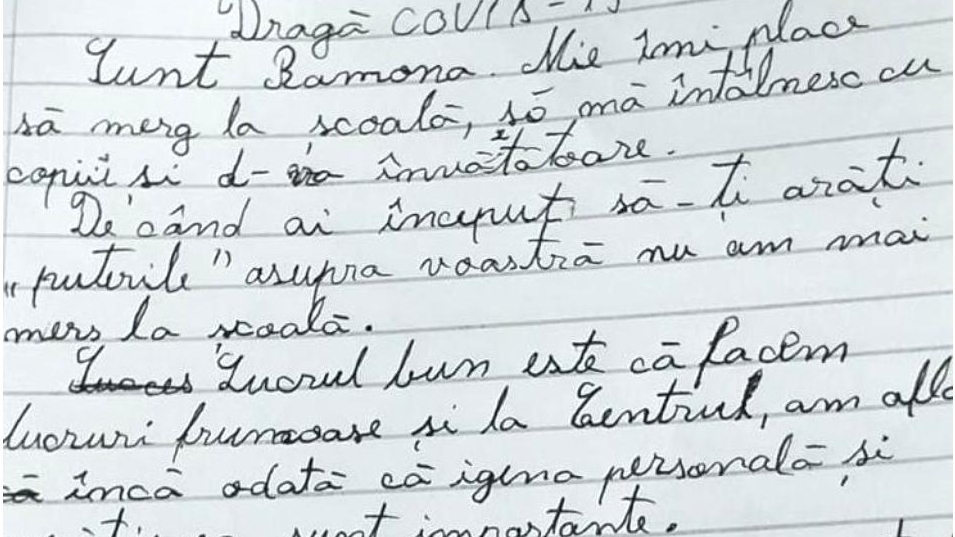 Dragă COVID-19
Sunt Ramona. Mie îmi place
să merg la școală, să mă întâlnesc cu
copiii si d-na învățătoare.
De când ai început să-ți arăți
„puterile” asupra voastră nu am mai
mers la școală.
Lucrul bun este că facem
lucruri frumoase și la Centrul, am afla
că încă odată că igena personală și
sunt importante.